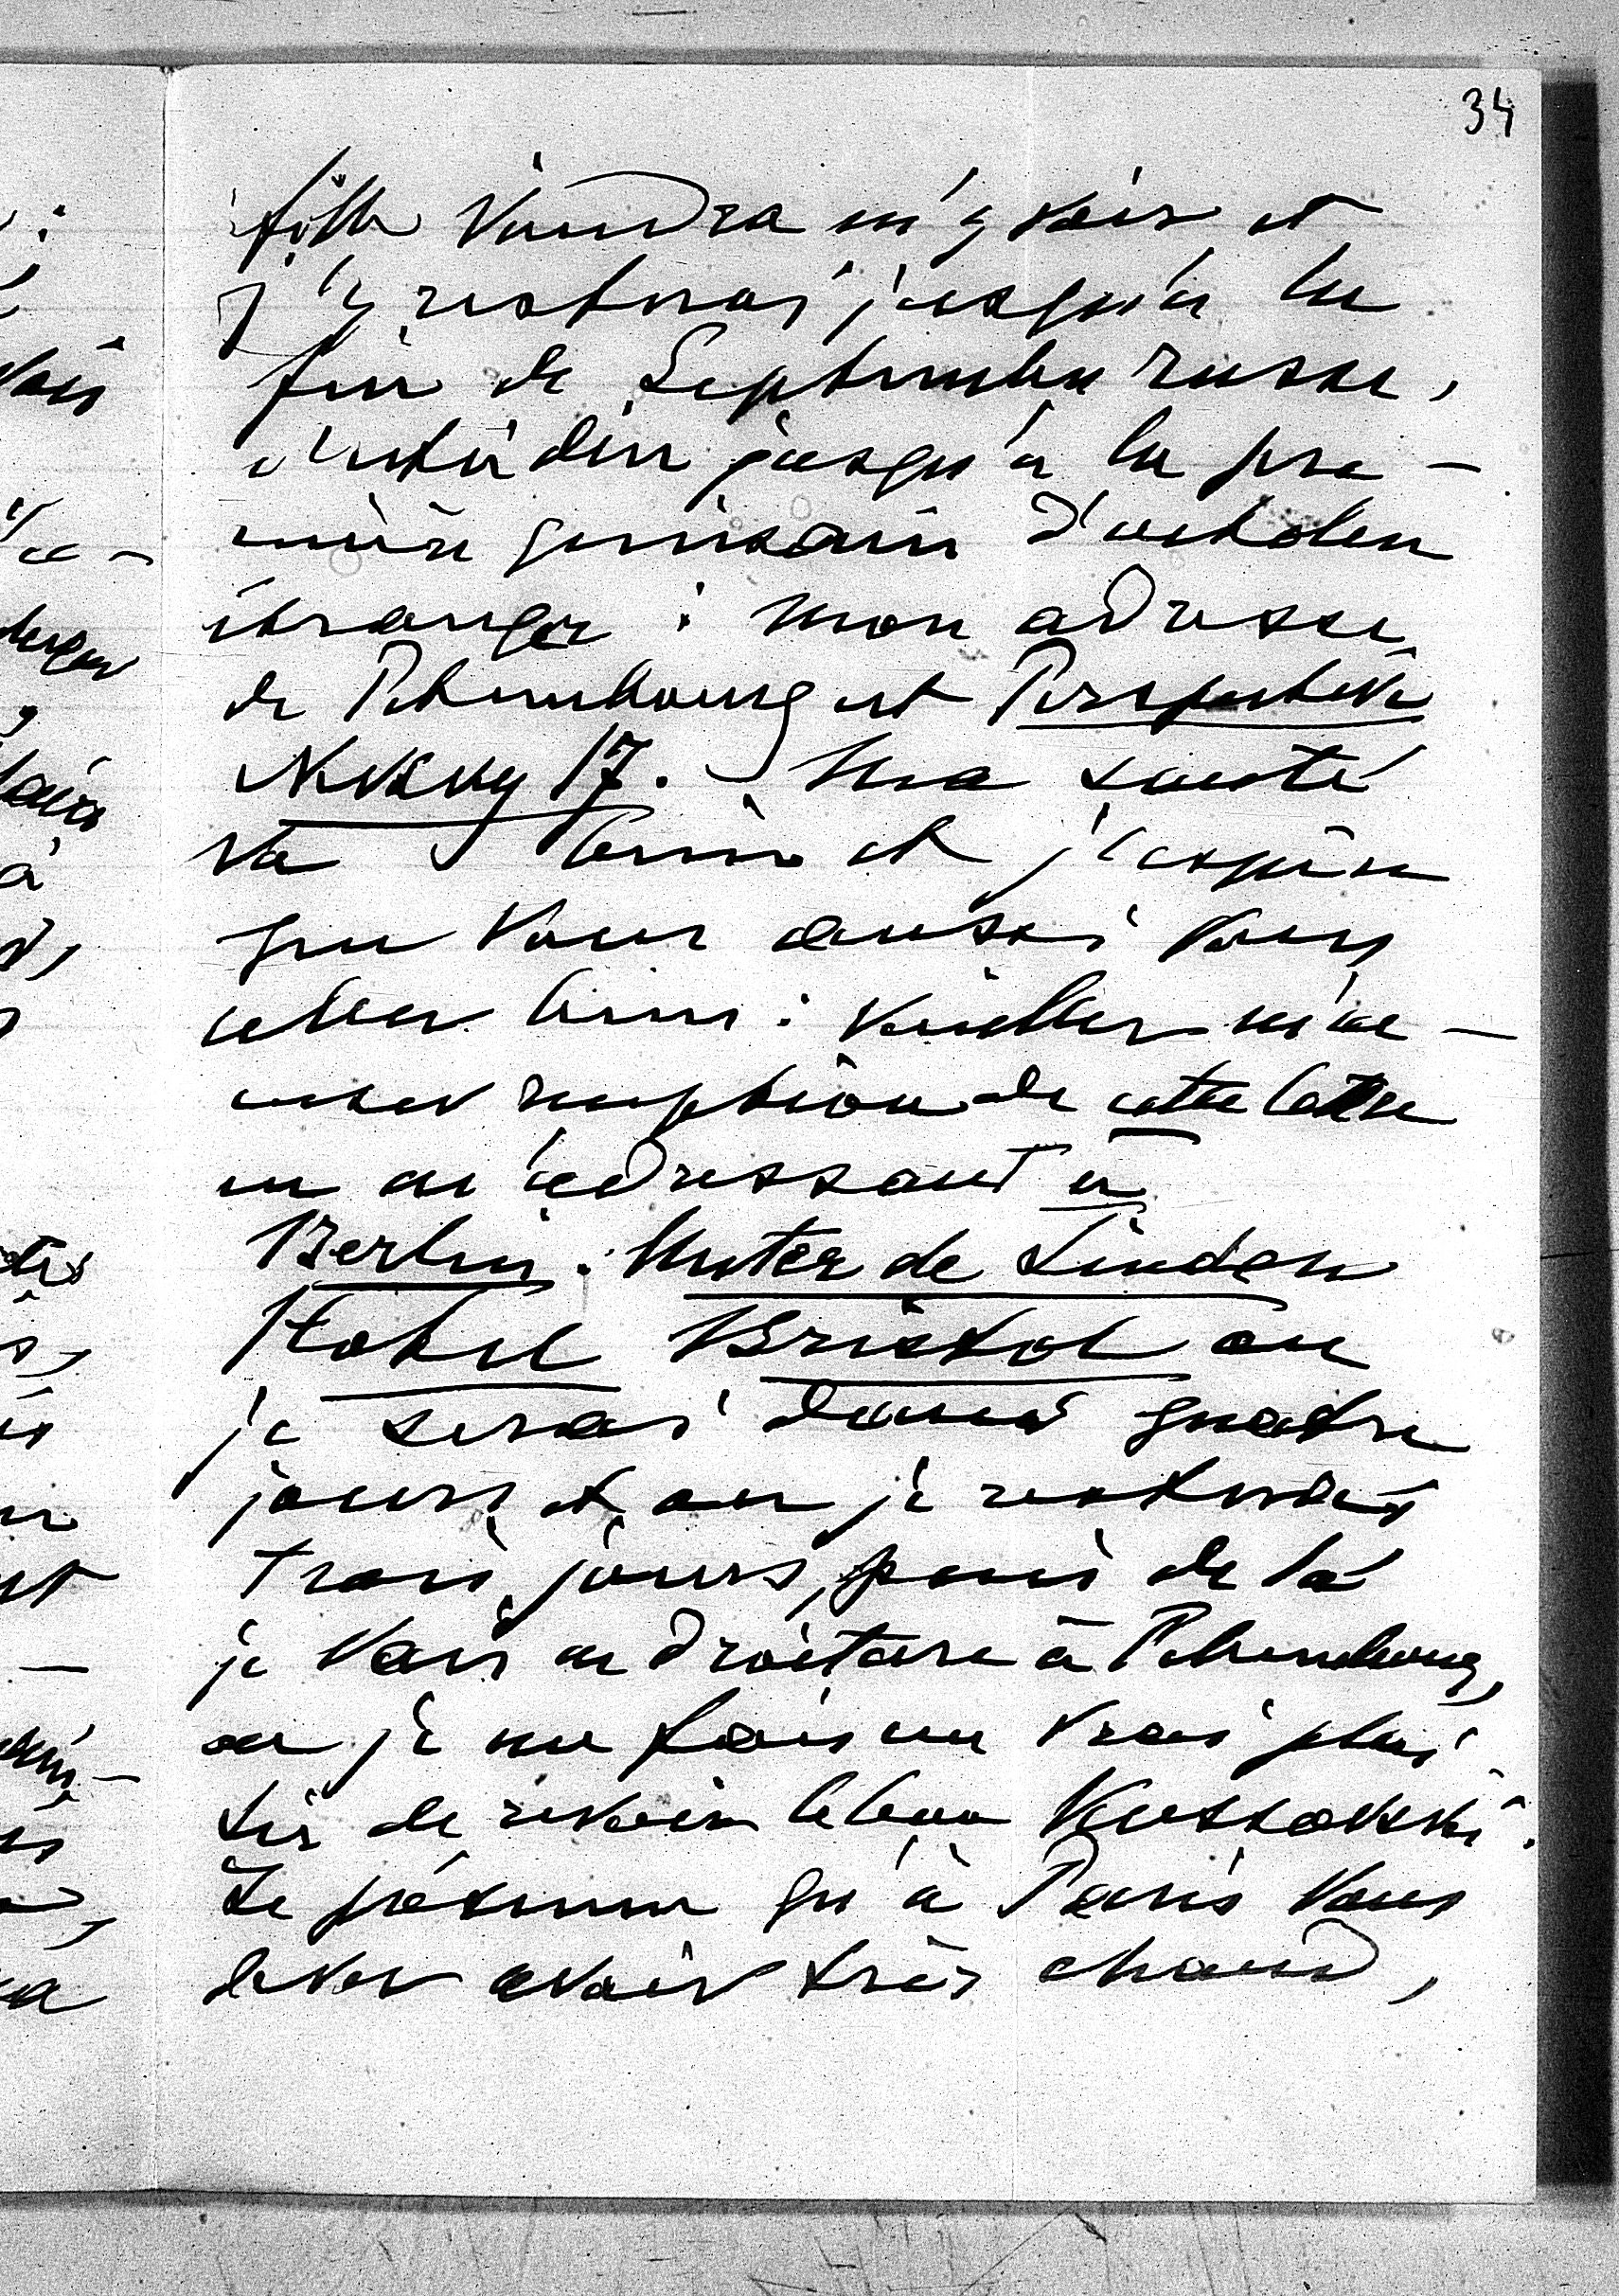 34
fille viendra m'y voir et
j'y resterai jusqu'à la
fin de Septembre russe,
c'est à dire jusqu'à la pre-
mière quinzaine d'octobre
étranger : mon adresse
de Petersbourg est Perspective
Nevsky 17. Ma santé
va bien et j'espère
que Vous aussi Vous
allez bien : veuillez m'ac-
cuser reception de cette lettre
en m'adressant à
Berlin. Unter de Linden
Hotel Bristol ou
je serai dans quatre
jours et ou je resterai
trois jours, puis de là
je vais en droiture à Petersbourg,
ou je me fais un vrai plai
sir de revoir le bon
Je présume qu'à Paris Vous
devez avoir très chaud,